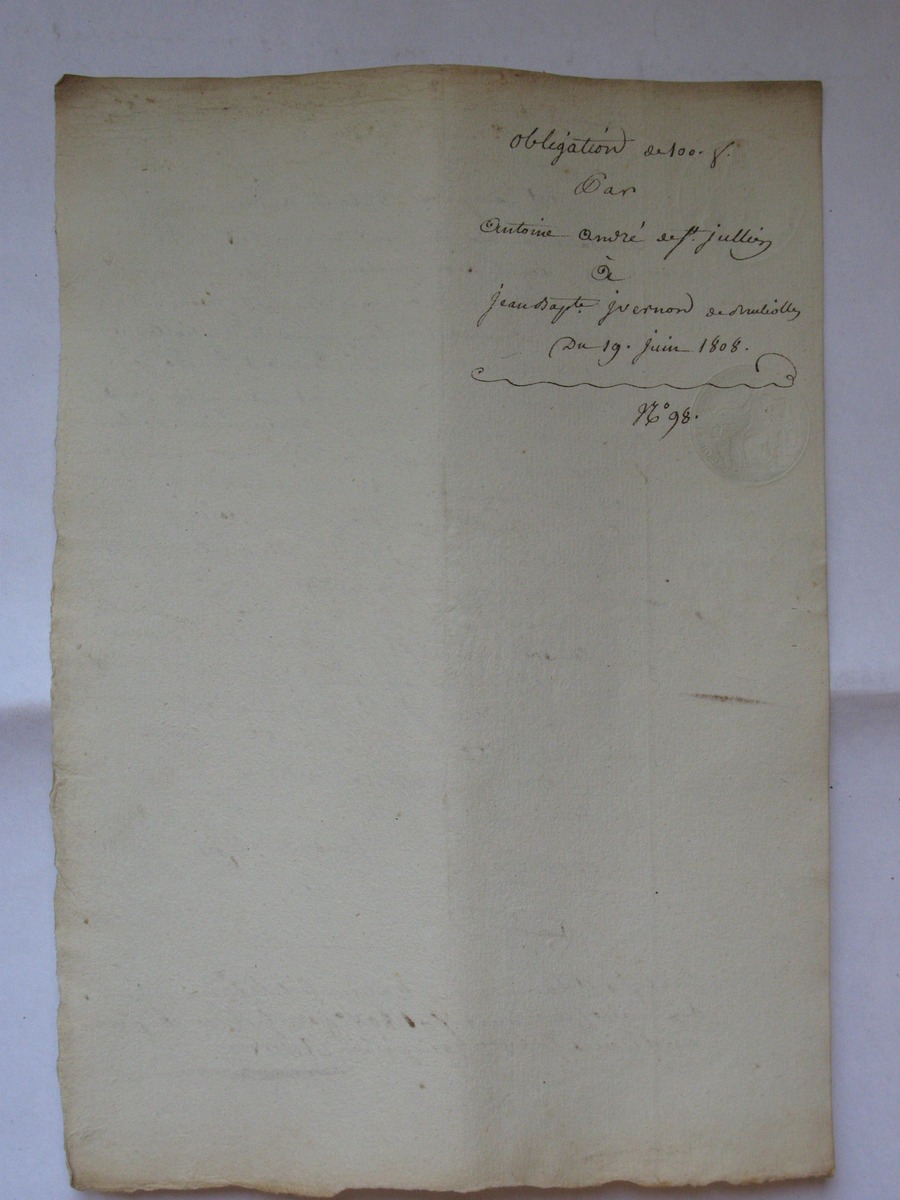 obligation de 100. f.
Par
Antoine andré de St. jullien
à
jean Bapte. jvernon de
Du 19. juin 1808.
N° 98.